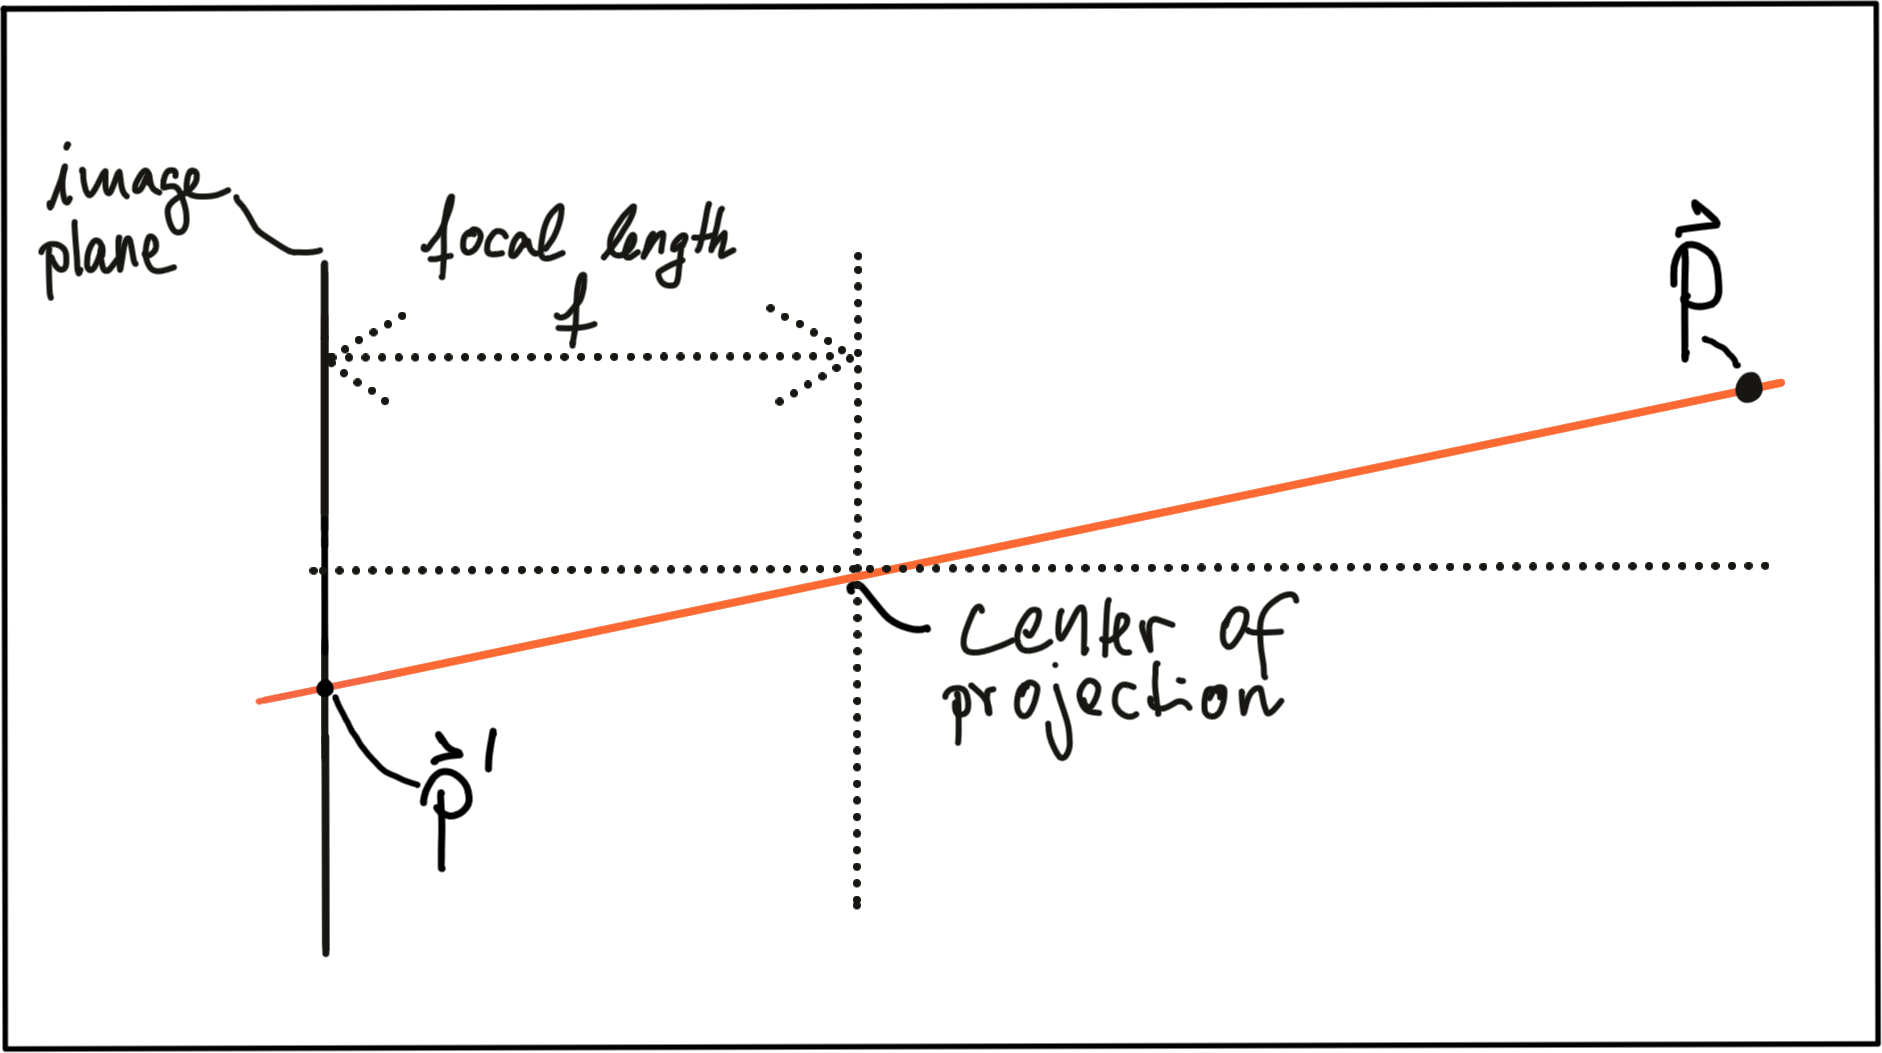 image
plane
focal length
f
p⃗
center of
projection
p⃗'